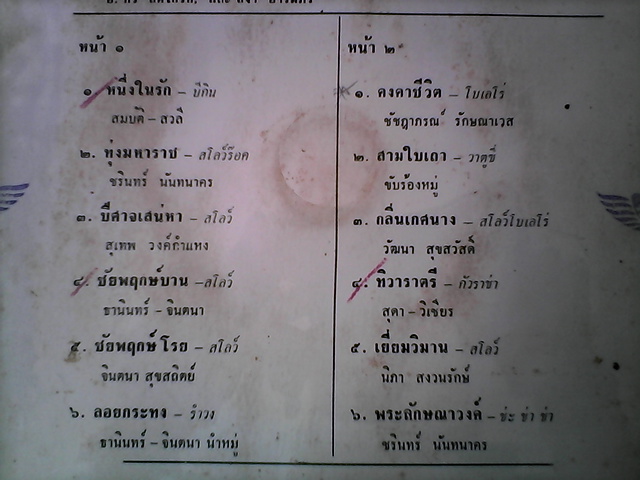 หน้า ๑
๑. หนึ่งในรัก – บีกิน
สมบัติ – สวลี
๒. ทุ่งมหาราช – สโลว์ร็อค
ชรินทร์ นันทนาคร
๓. ปีศาจเสน่หา – สโลว์
สุเทพ วงศ์กำแหง
๔. ชัยพฤกษ์บาน – สโลว์
ธานินทร์ – จินตนา
๕. ชัยพฤกษ์โรย – สโลว์
จินตนา สุขสถิตย์
๖. ลอยกระทง – รำวง
ธานินทร์ – จินตนา นำหมู่
หน้า ๒
๑. คงคาชีวิต – โบเลโร่
ชัชฎาภรณ์ รักษณาเวส
๒. สามใบเถา – วาตูซี่
ขับร้องหมู่
๓. กลิ่นเกศนาง – สโลว์โบเลโร่
วัฒนา สุขสวัสดิ์
๔. ทิวาราตรี – กัวราช่า
สุดา – วิเชียร
๕. เยี่ยมวิมาน – สโลว์
นิภา สงวนรักษ์
๖. พระลักษณาวงศ์ – ช่ะ ช่า ช่า
ชรินทร์ นันทนาคร